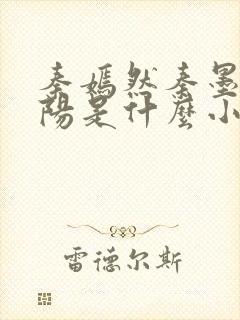 秦嫣然秦墨
陽是什麼小
雷德尔斯